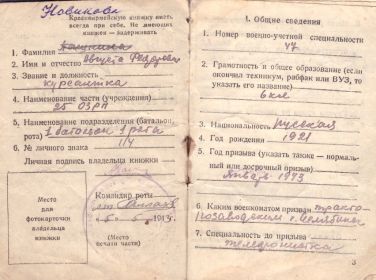 Новикова
Красноармейскую книжку иметь
всегда при себе. Не имеющих
книжек — задерживать
1. Фамилия
2. Имя и отчество Августа Федоровна
3. Звание и должность
курсантка
4. Наименование части (учреждения)
25 ОЗРП
5. Наименование подразделения (батальон,
рота) 1 батальон 1 рота
6. № личного знака
Личная подпись владельца книжки
Место
для
фотокарточки
владельца
книжки
Командир роты
1943 г.
(Место
печати части)
I. Общие сведения
1. Номер военно-учетной специальности
47
2. Грамотность и общее образование (если
окончил техникум, рабфак или ВУЗ, то
указать его название)
6 кл
3. Национальность русская
4. Год рождения 1921
5. Год призыва (указать также — нормаль-
ный или досрочный призыв)
Январь 1943
6. Каким военкоматом призван тракто
розаводским г. Челябинс
7. Специальность до призыва
телефонистка
3